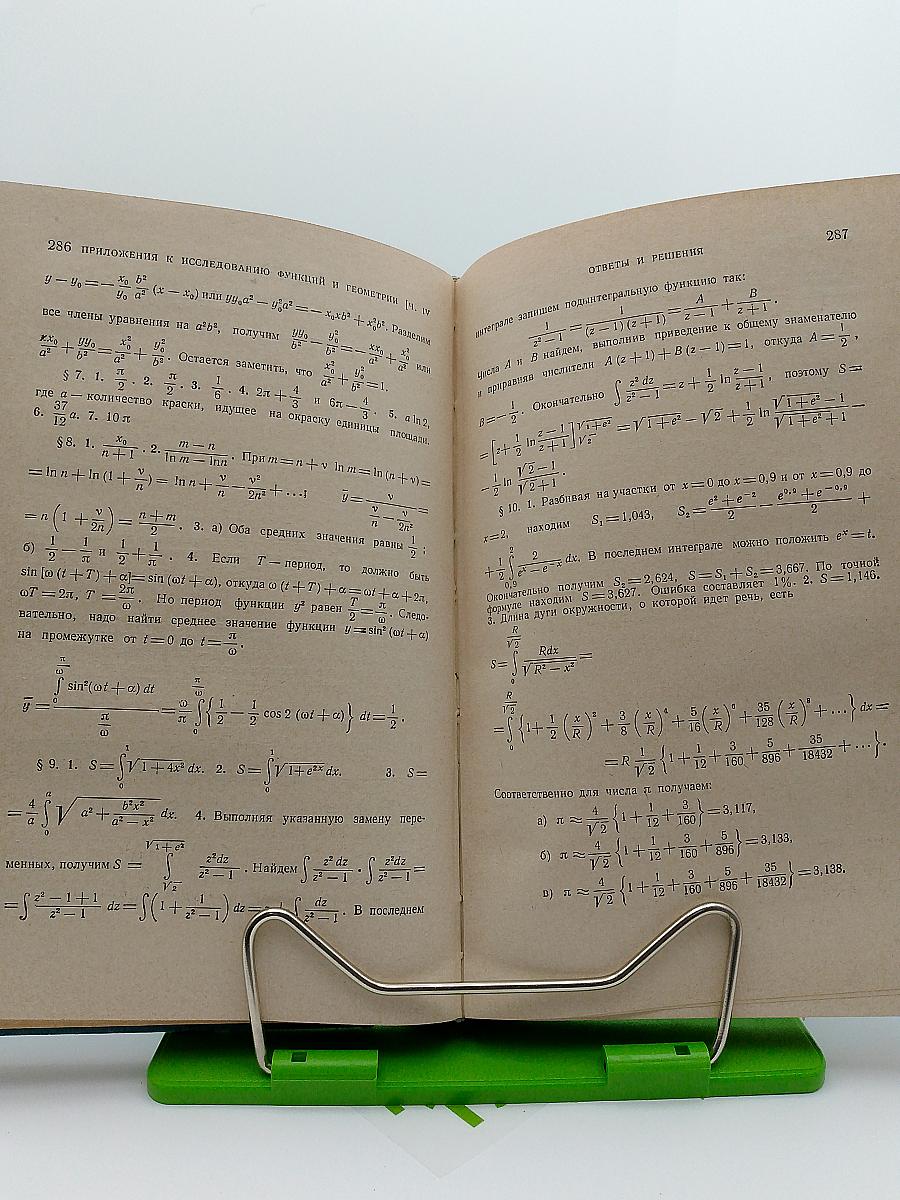 286 ПРИЛОЖЕНИЯ К ИССЛЕДОВАНИЮ ФУНКЦИЙ И ГЕОМЕТРИИ [Ч. IV
y − y₀ = − x₀/y₀ b²/a² (x − x₀) или yy₀a² − y₀²a² = − x₀xb² + x₀²b². Разделим
все члены уравнения на a²b², получим yy₀/b² − y₀²/b² = − xx₀/a² + x₀²/a² или
xx₀/a² + yy₀/b² = x₀²/a² + y₀²/b². Остается заметить, что x₀²/a² + y₀²/b² = 1.
§ 7. 1. π/2. 2. π/2. 3. 1/6. 4. 2π + 4/3 и 6π − 4/3. 5. a ln 2,
где a — количество краски, идущее на окраску единицы площади.
6. 37/12 a. 7. 10 π
§ 8. 1. x₀/(n + 1). 2. (m − n)/(ln m − ln n). При m = n + ν ln m = ln (n + ν) =
= ln n + ln (1 + ν/n) = ln n + ν/n − ν²/2n² + ...; ȳ = ν/(ν/n − ν²/2n²) =
= n (1 + ν/2n) = (n + m)/2. 3. а) Оба средних значения равны 1/2;
б) 1/2 − 1/π и 1/2 + 1/π. 4. Если T — период, то должно быть
sin [ω (t + T) + α] = sin (ωt + α), откуда ω (t + T) + α = ωt + α + 2π,
ωT = 2π, T = 2π/ω. Но период функции y² равен T/2 = π/ω. Следо-
вательно, надо найти среднее значение функции y = sin² (ωt + α)
на промежутке от t = 0 до t = π/ω.
ȳ = ∫₀^{π/ω} sin² (ωt + α) dt / (π/ω) = ω/π ∫₀^{π/ω} {1/2 − 1/2 cos 2 (ωt + α)} dt = 1/2.
§ 9. 1. S = ∫₀¹ √(1 + 4x²) dx. 2. S = ∫₀¹ √(1 + e²ˣ) dx. 3. S =
= 4/a ∫₀ᵃ √(a² + b²x²/(a² − x²)) dx. 4. Выполняя указанную замену пере-
менных, получим S = ∫_{√2}^{√(1+e²)} z²dz/(z² − 1). Найдем ∫ z² dz/(z² − 1) · ∫ z²dz/(z² − 1) =
= ∫ (z² − 1 + 1)/(z² − 1) dz = ∫ (1 + 1/(z² − 1)) dz = ∫ dz/(z² − 1). В последнем
287
ОТВЕТЫ И РЕШЕНИЯ
интеграле запишем подынтегральную функцию так:
1/(z² − 1) = 1/((z − 1) (z + 1)) = A/(z − 1) + B/(z + 1).
Числа A и B найдем, выполнив приведение к общему знаменателю
и приравняв числители A (z + 1) + B (z − 1) = 1, откуда A = 1/2,
B = − 1/2. Окончательно ∫ z² dz/(z² − 1) = z + 1/2 ln (z − 1)/(z + 1), поэтому S =
= [z + 1/2 ln (z − 1)/(z + 1)]_{√2}^{√(1+e²)} = √(1 + e²) − √2 + 1/2 ln (√(1 + e²) − 1)/(√(1 + e²) + 1) −
− 1/2 ln (√2 − 1)/(√2 + 1).
§ 10. 1. Разбивая на участки от x = 0 до x = 0,9 и от x = 0,9 до
x = 2, находим S₁ = 1,043, S₂ = (e² + e⁻²)/2 − (e⁰·⁹ + e⁻⁰·⁹)/2 +
+ 1/2 ∫_{0,9}^{2} 2/(eˣ − e⁻ˣ) dx. В последнем интеграле можно положить eˣ = t.
Окончательно получим S₂ = 2,624, S = S₁ + S₂ = 3,667. По точной
формуле находим S = 3,627. Ошибка составляет 1%. 2. S = 1,146.
3. Длина дуги окружности, о которой идет речь, есть
S = ∫₀^{R/√2} Rdx/√(R² − x²) =
= ∫₀^{R/√2} {1 + 1/2 (x/R)² + 3/8 (x/R)⁴ + 5/16 (x/R)⁶ + 35/128 (x/R)⁸ + ...} dx =
= R 1/√2 {1 + 1/12 + 3/160 + 5/896 + 35/18432 + ...}.
Соответственно для числа π получаем:
а) π ≈ 4/√2 {1 + 1/12 + 3/160} = 3,117,
б) π ≈ 4/√2 {1 + 1/12 + 3/160 + 5/896} = 3,133,
в) π ≈ 4/√2 {1 + 1/12 + 3/160 + 5/896 + 35/18432} = 3,138.